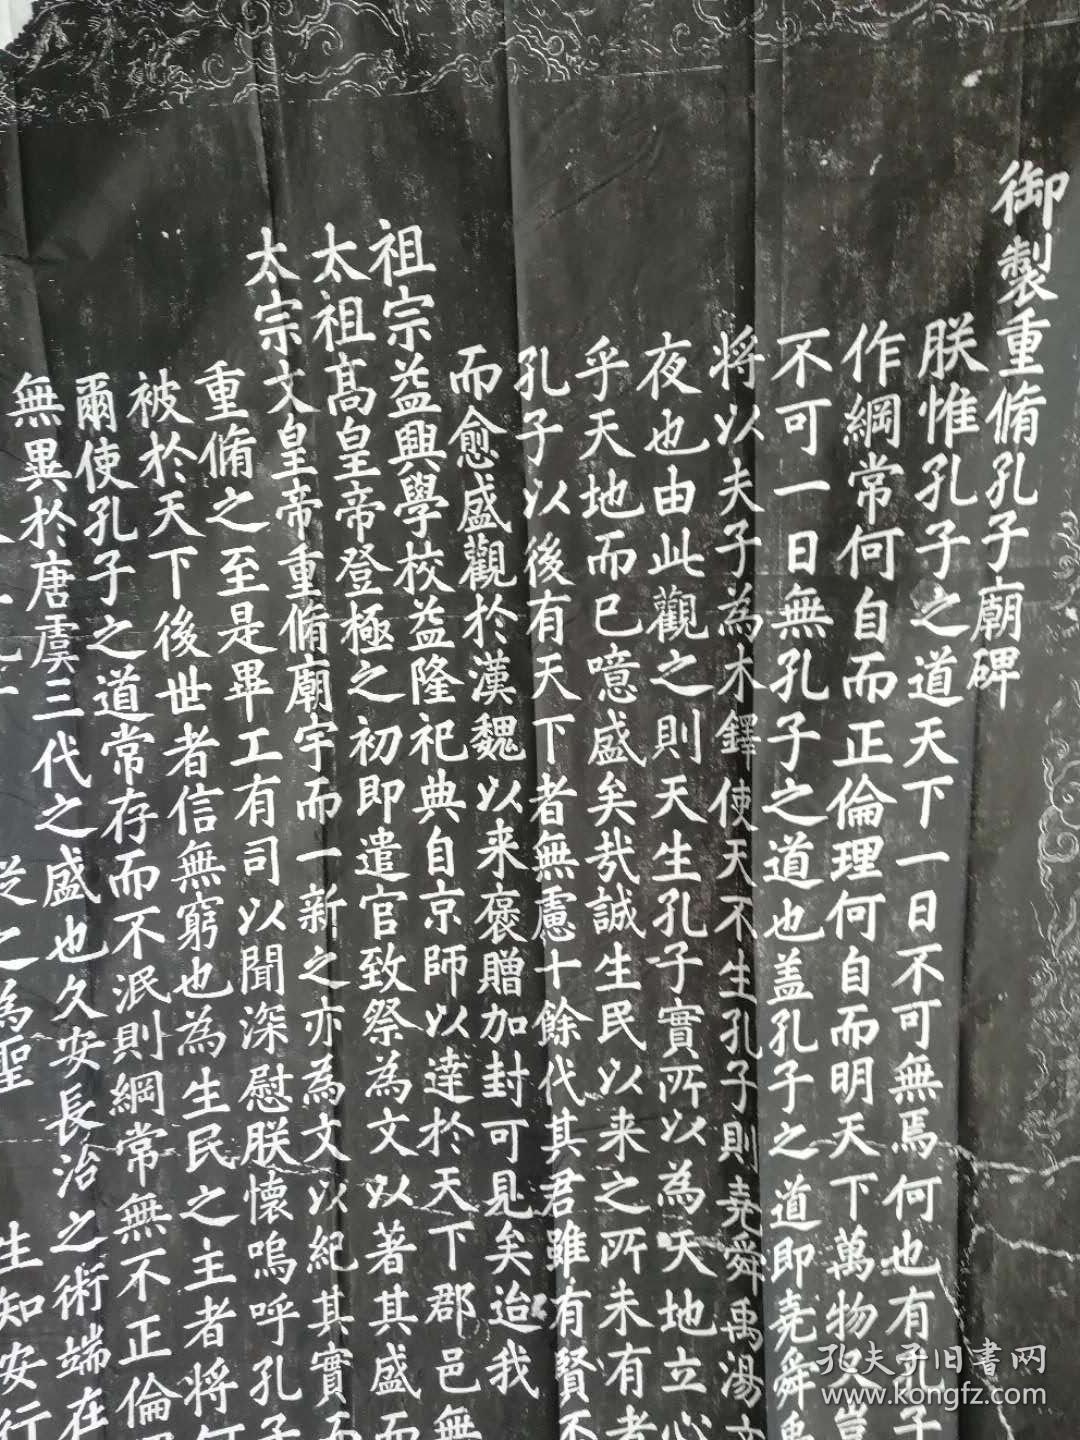 御製重脩孔子廟碑
朕惟孔子之道天下一日不可無焉何也有孔子
作綱常何自而正倫理何自而明天下萬物又豈
不可一日無孔子之道也盖孔子之道即堯舜禹
将以夫子為木鐸使天不生孔子則堯舜禹湯文
夜也由此觀之則天生孔子實所以為天地立心
乎天地而已噫盛矣哉誠生民以来之所未有者
孔子以後有天下者無慮十餘代其君雖有賢不
而愈盛觀於漢魏以来褒贈加封可見矣迨我
祖宗益興學校益隆祀典自京師以達於天下郡邑無
太祖髙皇帝登極之初即遣官致祭為文以著其盛而
太宗文皇帝重脩廟宇而一新之亦為文以紀其實而
重脩之至是畢工有司以聞深慰朕懷嗚呼孔子
被於天下後世者信無窮也為生民之主者将何
爾使孔子之道常存而不泯則綱常無不正倫理
無異於唐虞三代之盛也久安長治之術端在
従之為聖 生知安行
孔夫子旧書网
www.kongfz.com